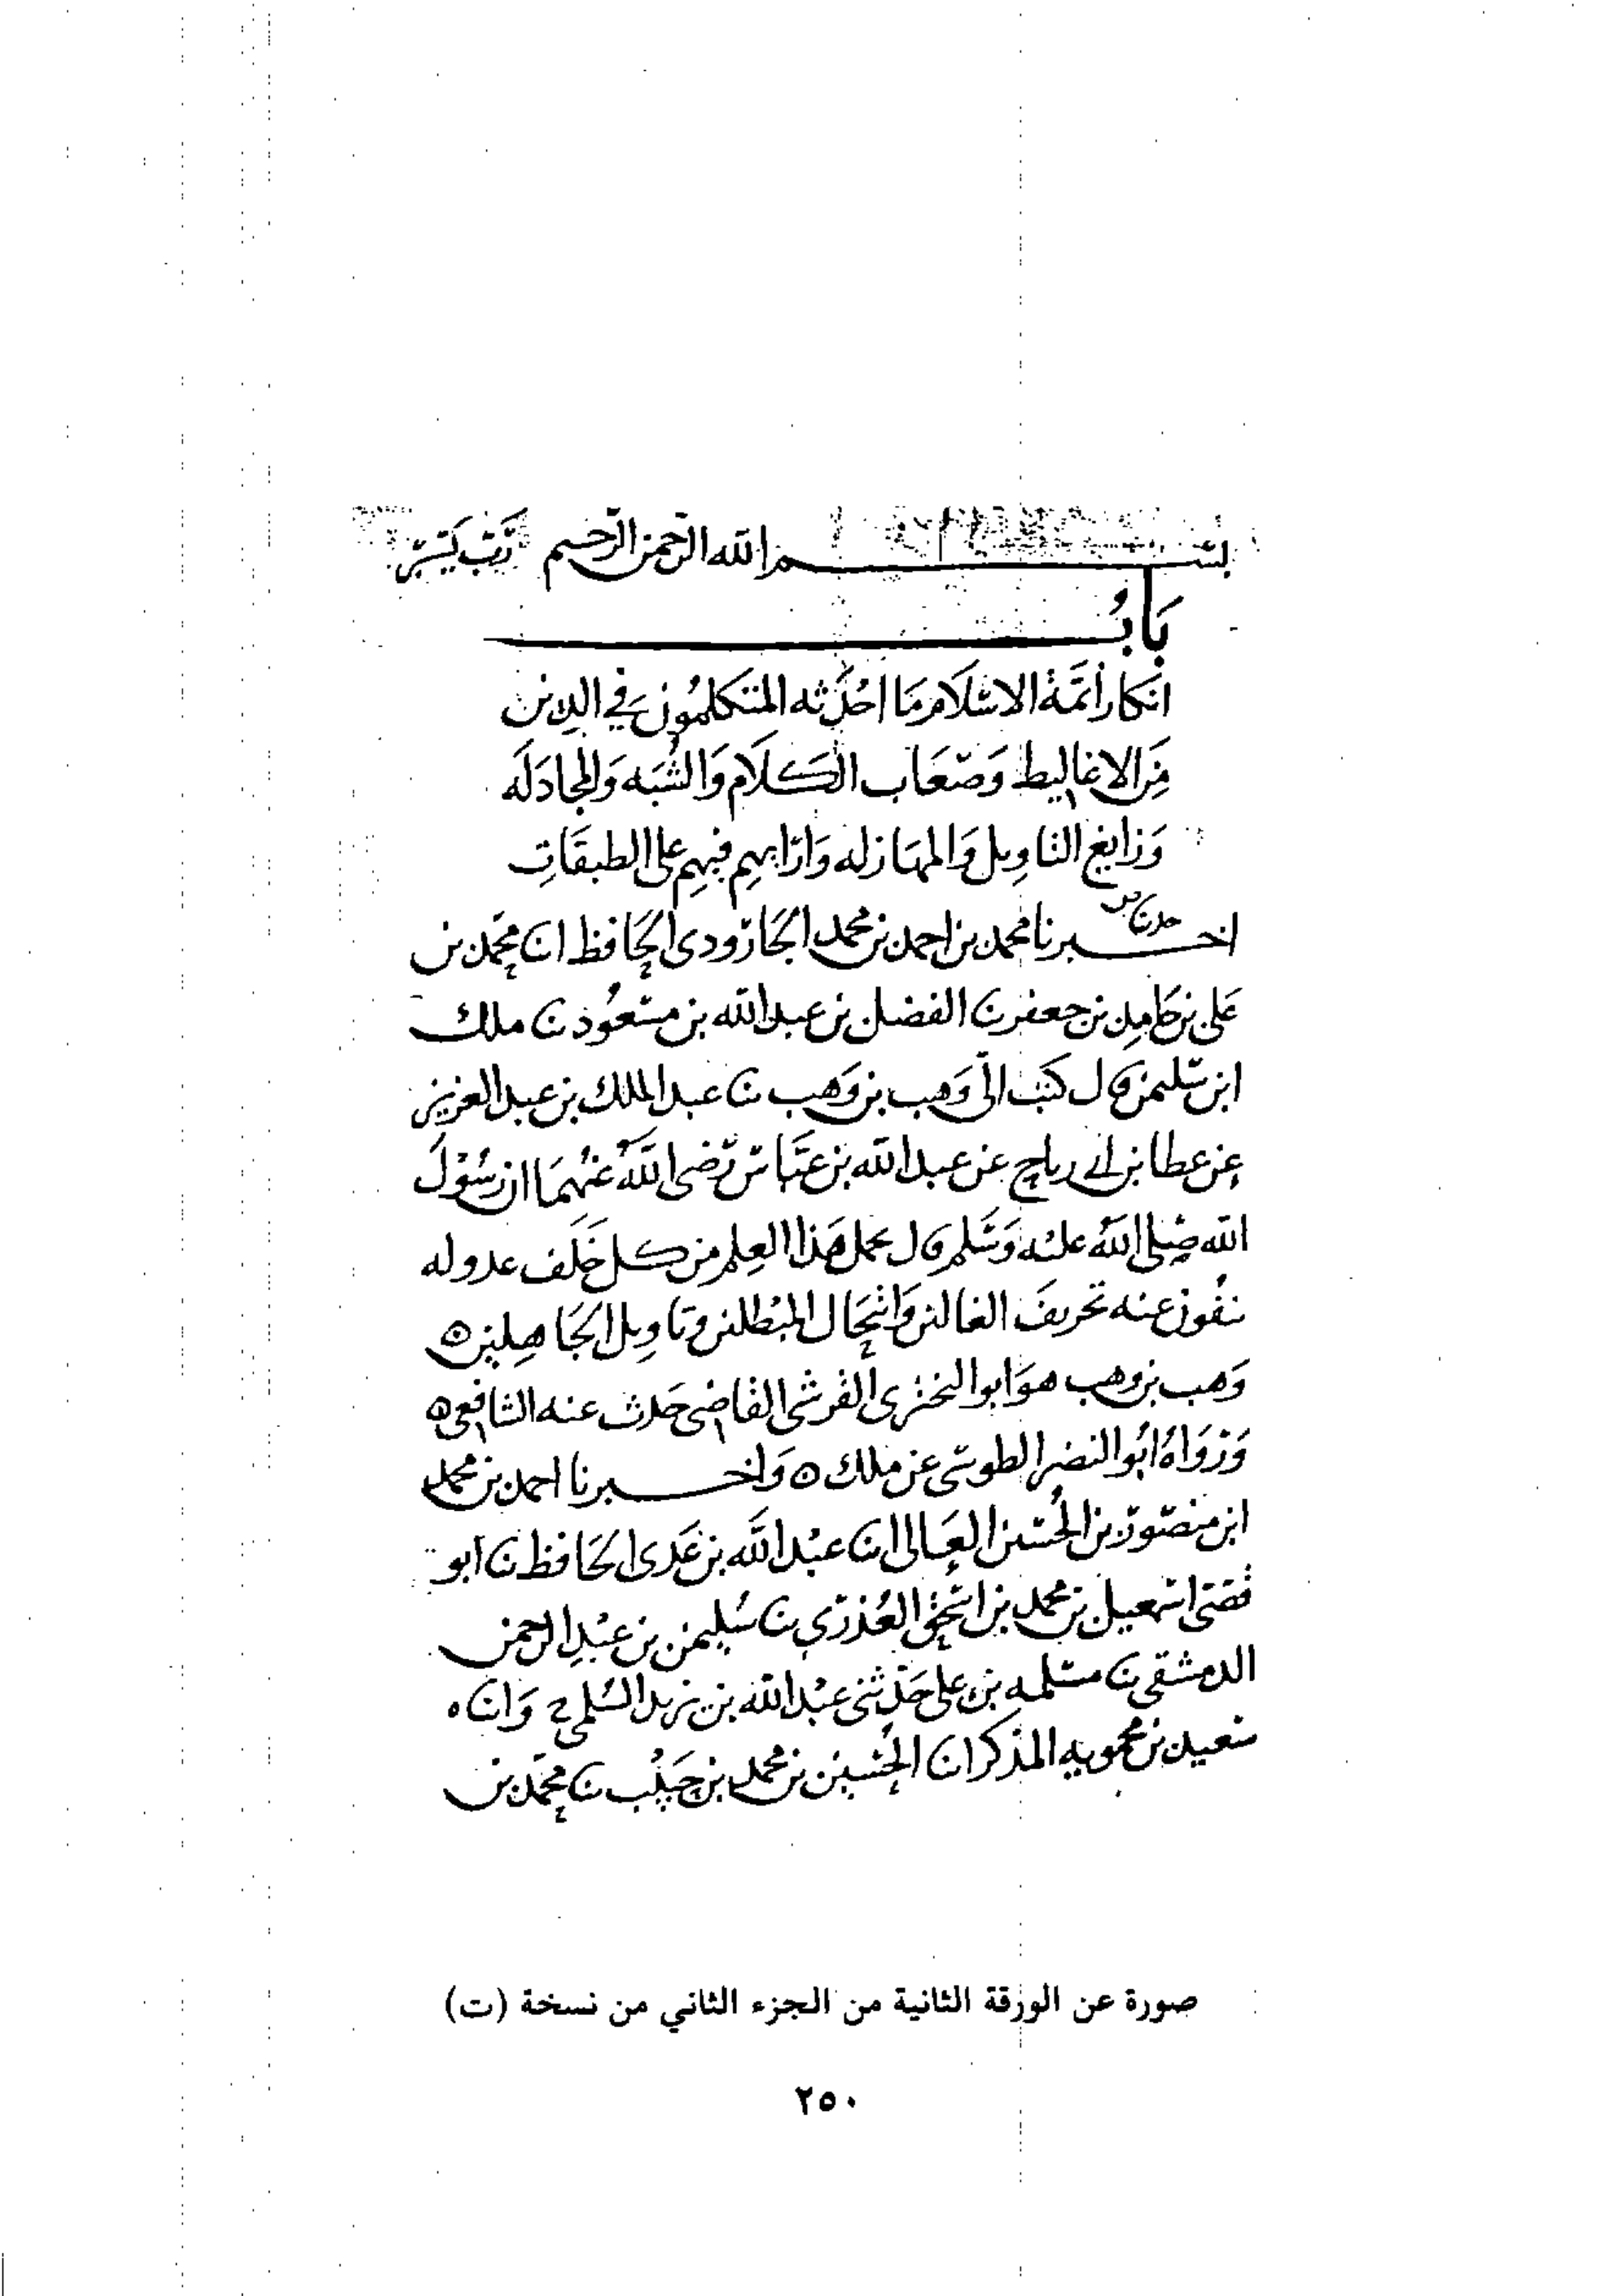 بسم الله الرحمن الرحيم رَبّ يَسِّرْ
بَابُ
انكار أئمة الاسلام مَا احْدَثه المتكلمُون في الدين
مِنَ الاغاليط وَصعَاب الكلَام وَالشُبَه وَالمجادَلَه
وَزايغ التاويل وَالمهَازله وَارَايهم فيهم على الطبقَاتِ
اخبرنا محمد بن احمد بن محمد الجَارُودى الحَافظ انا محمد بن
عَلى بن حَامِد بن جعفر نا الفضل بن عبد الله بن مسعُود نا ملك
ابن سليمن قال كتبَ الىّ وَهب بن وَهب نا عبد الملك بن عبد العزيز
عن عطا بن ابى رباح عن عبد الله بن عبَّاس رَضى اللهُ عنهُمَا ان رسُوْلَ
الله صَلى اللهُ عليْه وَسَلم قال يحمل هَذا العِلم من كل خَلَف عدوله
ينفُون عنه تحريفَ الغالين وَانتحَال المبْطلين وتاويل الجَاهِلين ه
وَهب بن وهب هوَ ابو البختري القرشى القاضى حَدث عنه الشافعى ه
وَرَوَاهُ ابُو النضر الطوسى عن ملك ه وَاخبرنا احمد بن محمد
ابن منصور بن الحُسَين العَالى انا عبْد اللَّه بن عَدى الحَافظ نا ابو
قصَى اسمعيل بن محمد بن اسْحٰق العُذرى نا سُليمن بن عبْدِ الرحمن
الدمشقى نا مسلمه بن على حَدّثنى عبْد الله بن يزيد السُلمى ح وَانا ه
سعيد بن محمويه المذكر انا الحُسَين بن محمد بن حَبيْب نا محمّد بن
صورة عن الورقة الثانية من الجزء الثاني من نسخة (ت)
٢٥٠